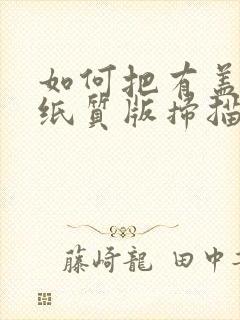 如何把有盖
纸质版扫描
藤崎龍 田中